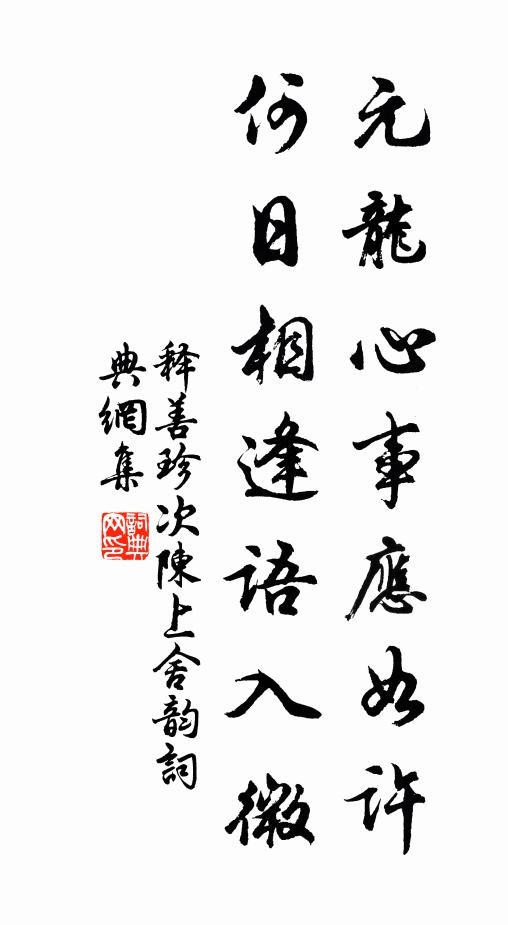 元龍心事應如許
何日相逢語入微
释善珍次陳上舍韵詞
典網集
詞典网印